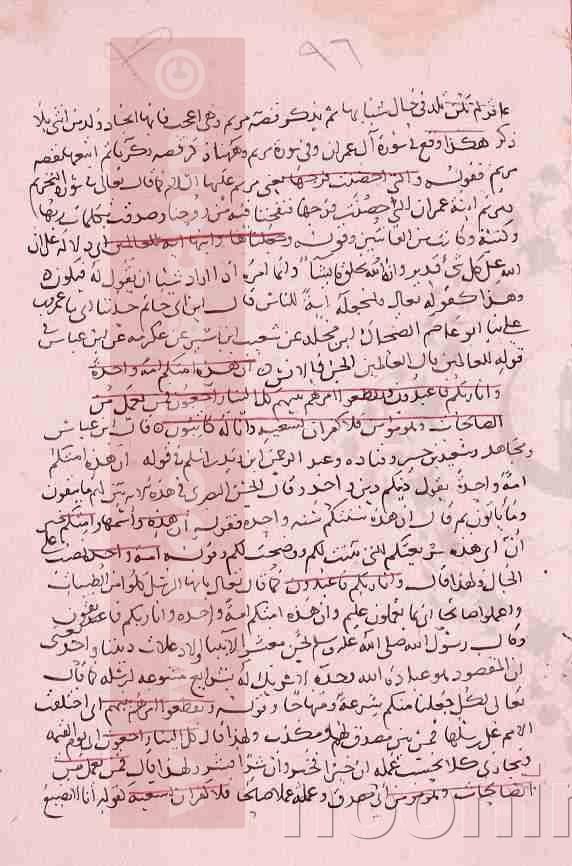 ٩٦
عاقر لم تلد في حال شبابها ثم يذكر قصة مريم وهي اعجب فانها ايجاد ولد من انثى بلا
ذكر هكذا وقع في سورة آل عمران وفي سورة مريم وههنا ذكر قصة زكريا ثم اتبعها بقصة
مريم فقوله والتي احصنت فرجها يعني مريم عليها السلام كما قال تعالى في سورة التحريم
ومريم ابنة عمران التي احصنت فرجها فنفخنا فيه من روحنا وصدقت بكلمات ربها
وكتبه وكانت من القانتين وقوله وجعلناها وابنها اية للعالمين اي دلالة على ان
الله على كل شي قدير وانه يخلق ما يشا وانما امره اذا اراد شيا ان يقول له كن فيكون
وهذا كقوله تعالى ولنجعله اية للناس قال ابن ابي حاتم حدثنا ابي عمرو بن
علي ثنا ابو عاصم الضحاك ابن مخلد عن شعيب ابن بشر عن عكرمة عن ابن عباس في
قوله للعالمين قال العالمين الجن والانس ان هذه امتكم امة واحدة
وانا ربكم فاعبدون وتقطعوا امرهم بينهم كل الينا راجعون فمن يعمل من
الصالحات وهو مومن فلا كفران لسعيه وانا له كاتبون قال ابن عباس
ومجاهد وسعيد بن جبير وقتادة وعبد الرحمن ابن زيد ابن اسلم في قوله ان هذه امتكم
امة واحدة يقول دينكم دين واحد وقال الحسن البصري في هذه الاية بين لهم ما يتقون
وما ياتون ثم قال ان هذه سنتكم سنة واحدة فقوله ان هذه واسمها وامتكم خبر
ان اي هذه شريعتكم التي بينت لكم ووضحت لكم وقوله امة واحدة نصب على
الحال ولهذا قال وانا ربكم فاعبدون كما قال تعالى يا ايها الرسل كلوا من الطيبات
واعملوا صالحا اني بما تعملون عليم وان هذه امتكم امة واحدة وانا ربكم فاتقون
وقال رسول الله صلى الله عليه وسلم نحن معشر الانبيا اولاد علات ديننا واحد يعني
ان المقصود هو عبادة الله وحده لا شريك له بشرايع متنوعة لرسله كما قال
تعالى لكل جعلنا منكم شرعة ومنهاجا وقوله وتقطعوا امرهم بينهم اي اختلفت
الامم على رسلها فمن بين مصدق لهم ومكذب ولهذا قال كل الينا راجعون اي يوم القيمة
فيجازي كلا بحسب عمله ان خيرا فخير وان شرا فشر ولهذا قال فمن يعمل من
الصالحات وهو مومن اي صدق وعمل عملا صالحا فلا كفران لسعيه كقوله انا لا نضيع
noorlib